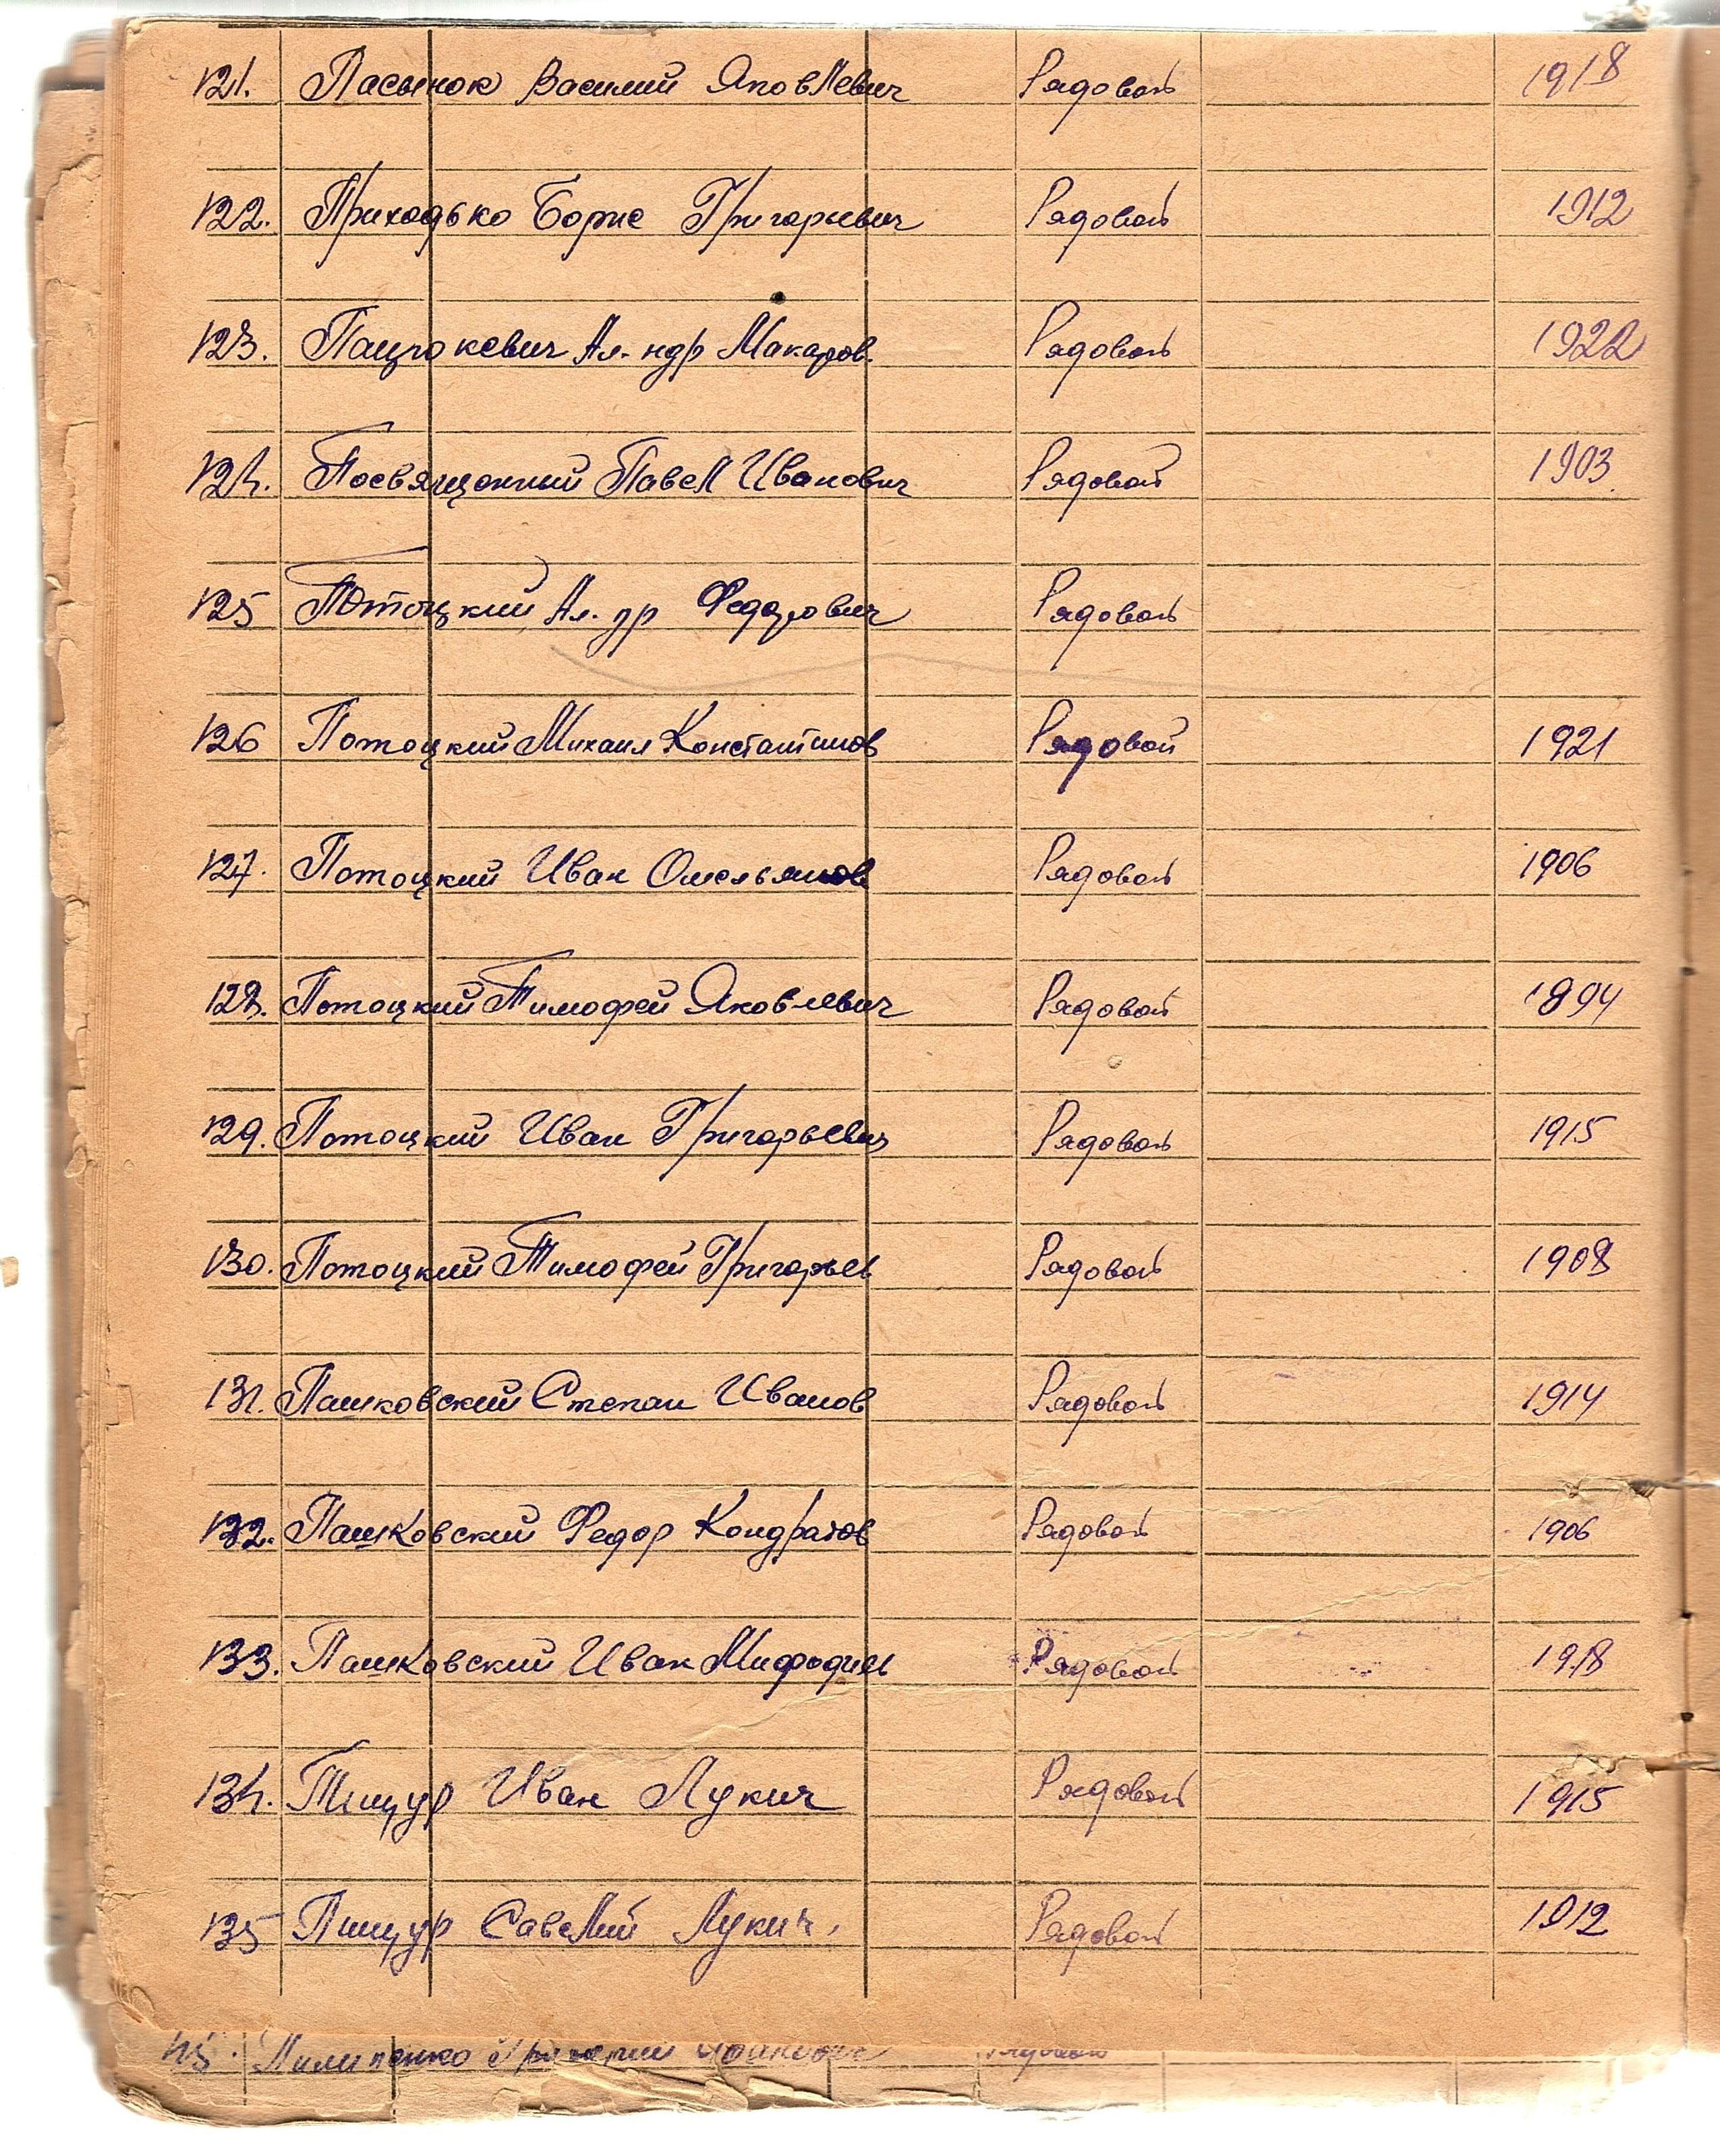 121. Пасынок Василий Яковлевич Рядовой 1918
122. Приходько Борис Григорьевич Рядовой 1912
123. Пацукевич Ал-ндр Макаров. Рядовой 1922
124. Посвящонный Павел Иванович Рядовой 1903
125 Потоцкий Ал-др Федорович Рядовой
126 Потоцкий Михаил Констатинов Рядовой 1921
127. Потоцкий Иван Омельянов Рядовой 1906
128. Потоцкий Тимофей Яковлевич Рядовой 1894
129. Потоцкий Иван Григорьевич Рядовой 1915
130. Потоцкий Тимофей Григорьев Рядовой 1908
131. Пашковский Степан Иванов Рядовой 1914
132. Пашковский Федор Кондратов Рядовой 1906
133. Пашковский Иван Мифодиев Рядовой 1918
134. Пищур Иван Лукич Рядовой 1915
135 Пищур Савелий Лукич. Рядовой 1912
Пилипенко Григорий Рядовой